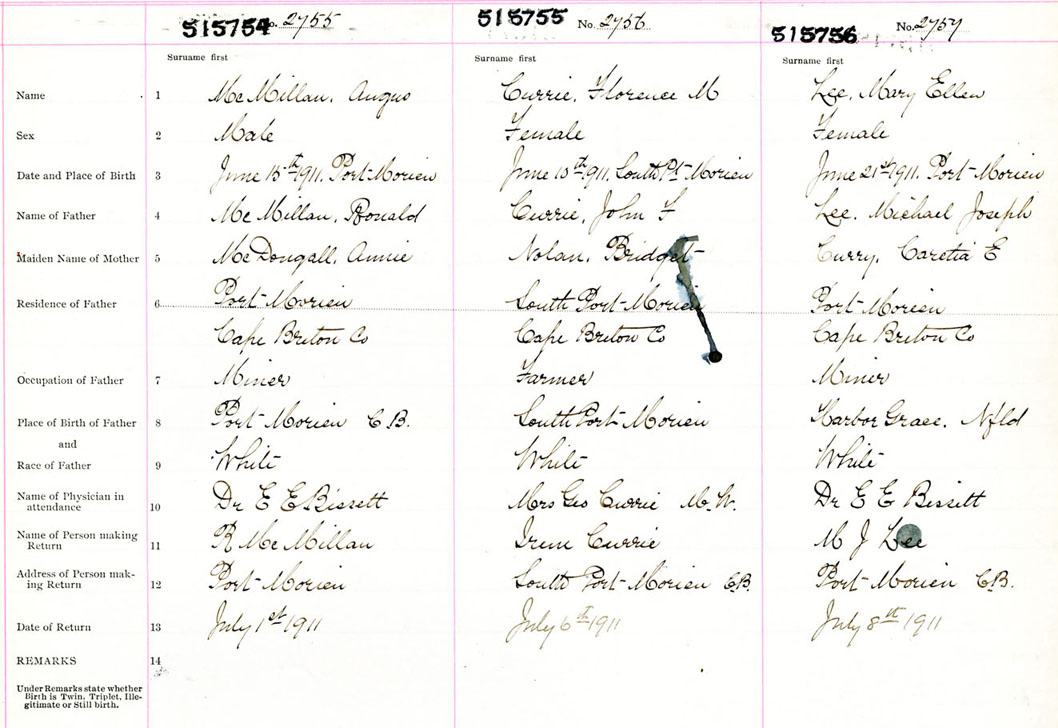 515754 No. 2755 515755 No. 2756 515756 No. 2757
Surname first Surname first Surname first
Name 1 McMillan, Angus Currie, Florence M Lee, Mary Ellen
Sex 2 Male Female Female
Date and Place of Birth 3 June 15th 1911. Port-Morien June 10th 1911. South Pt-Morien June 21st 1911. Port-Morien
Name of Father 4 McMillan, Ronald Currie, John F Lee, Michael Joseph
Maiden Name of Mother 5 McDougall, Annie Nolan, Bridget Curry, Caretia E
Residence of Father 6 Port-Morien South Port-Morien Port-Morien
Cape Breton Co Cape Breton Co Cape Breton Co
Occupation of Father 7 Miner Farmer Miner
Place of Birth of Father 8 Port-Morien C.B. South Port-Morien Harbor Grace, Nfld
and
Race of Father 9 White White White
Name of Physician in
attendance 10 Dr E E Bissett Mrs Geo Currie M.W. Dr E E Bissett
Name of Person making
Return 11 R McMillan Irene Currie M J Lee
Address of Person mak-
ing Return 12 Port-Morien South Port-Morien C.B. Port-Morien C.B.
Date of Return 13 July 1st 1911 July 6th 1911 July 8th 1911
REMARKS 14
Under Remarks state whether
Birth is Twin, Triplet, Ille-
gitimate or Still birth.